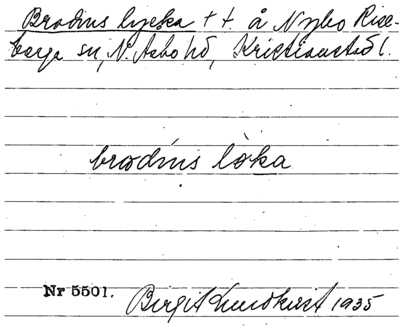 Brodins lycka t t. å Nybo Rise-
berga sn, N. Åsbo hd, Kristianstad l.
brodins lòka
Nr 5501. Birgit Lundkvist 1935